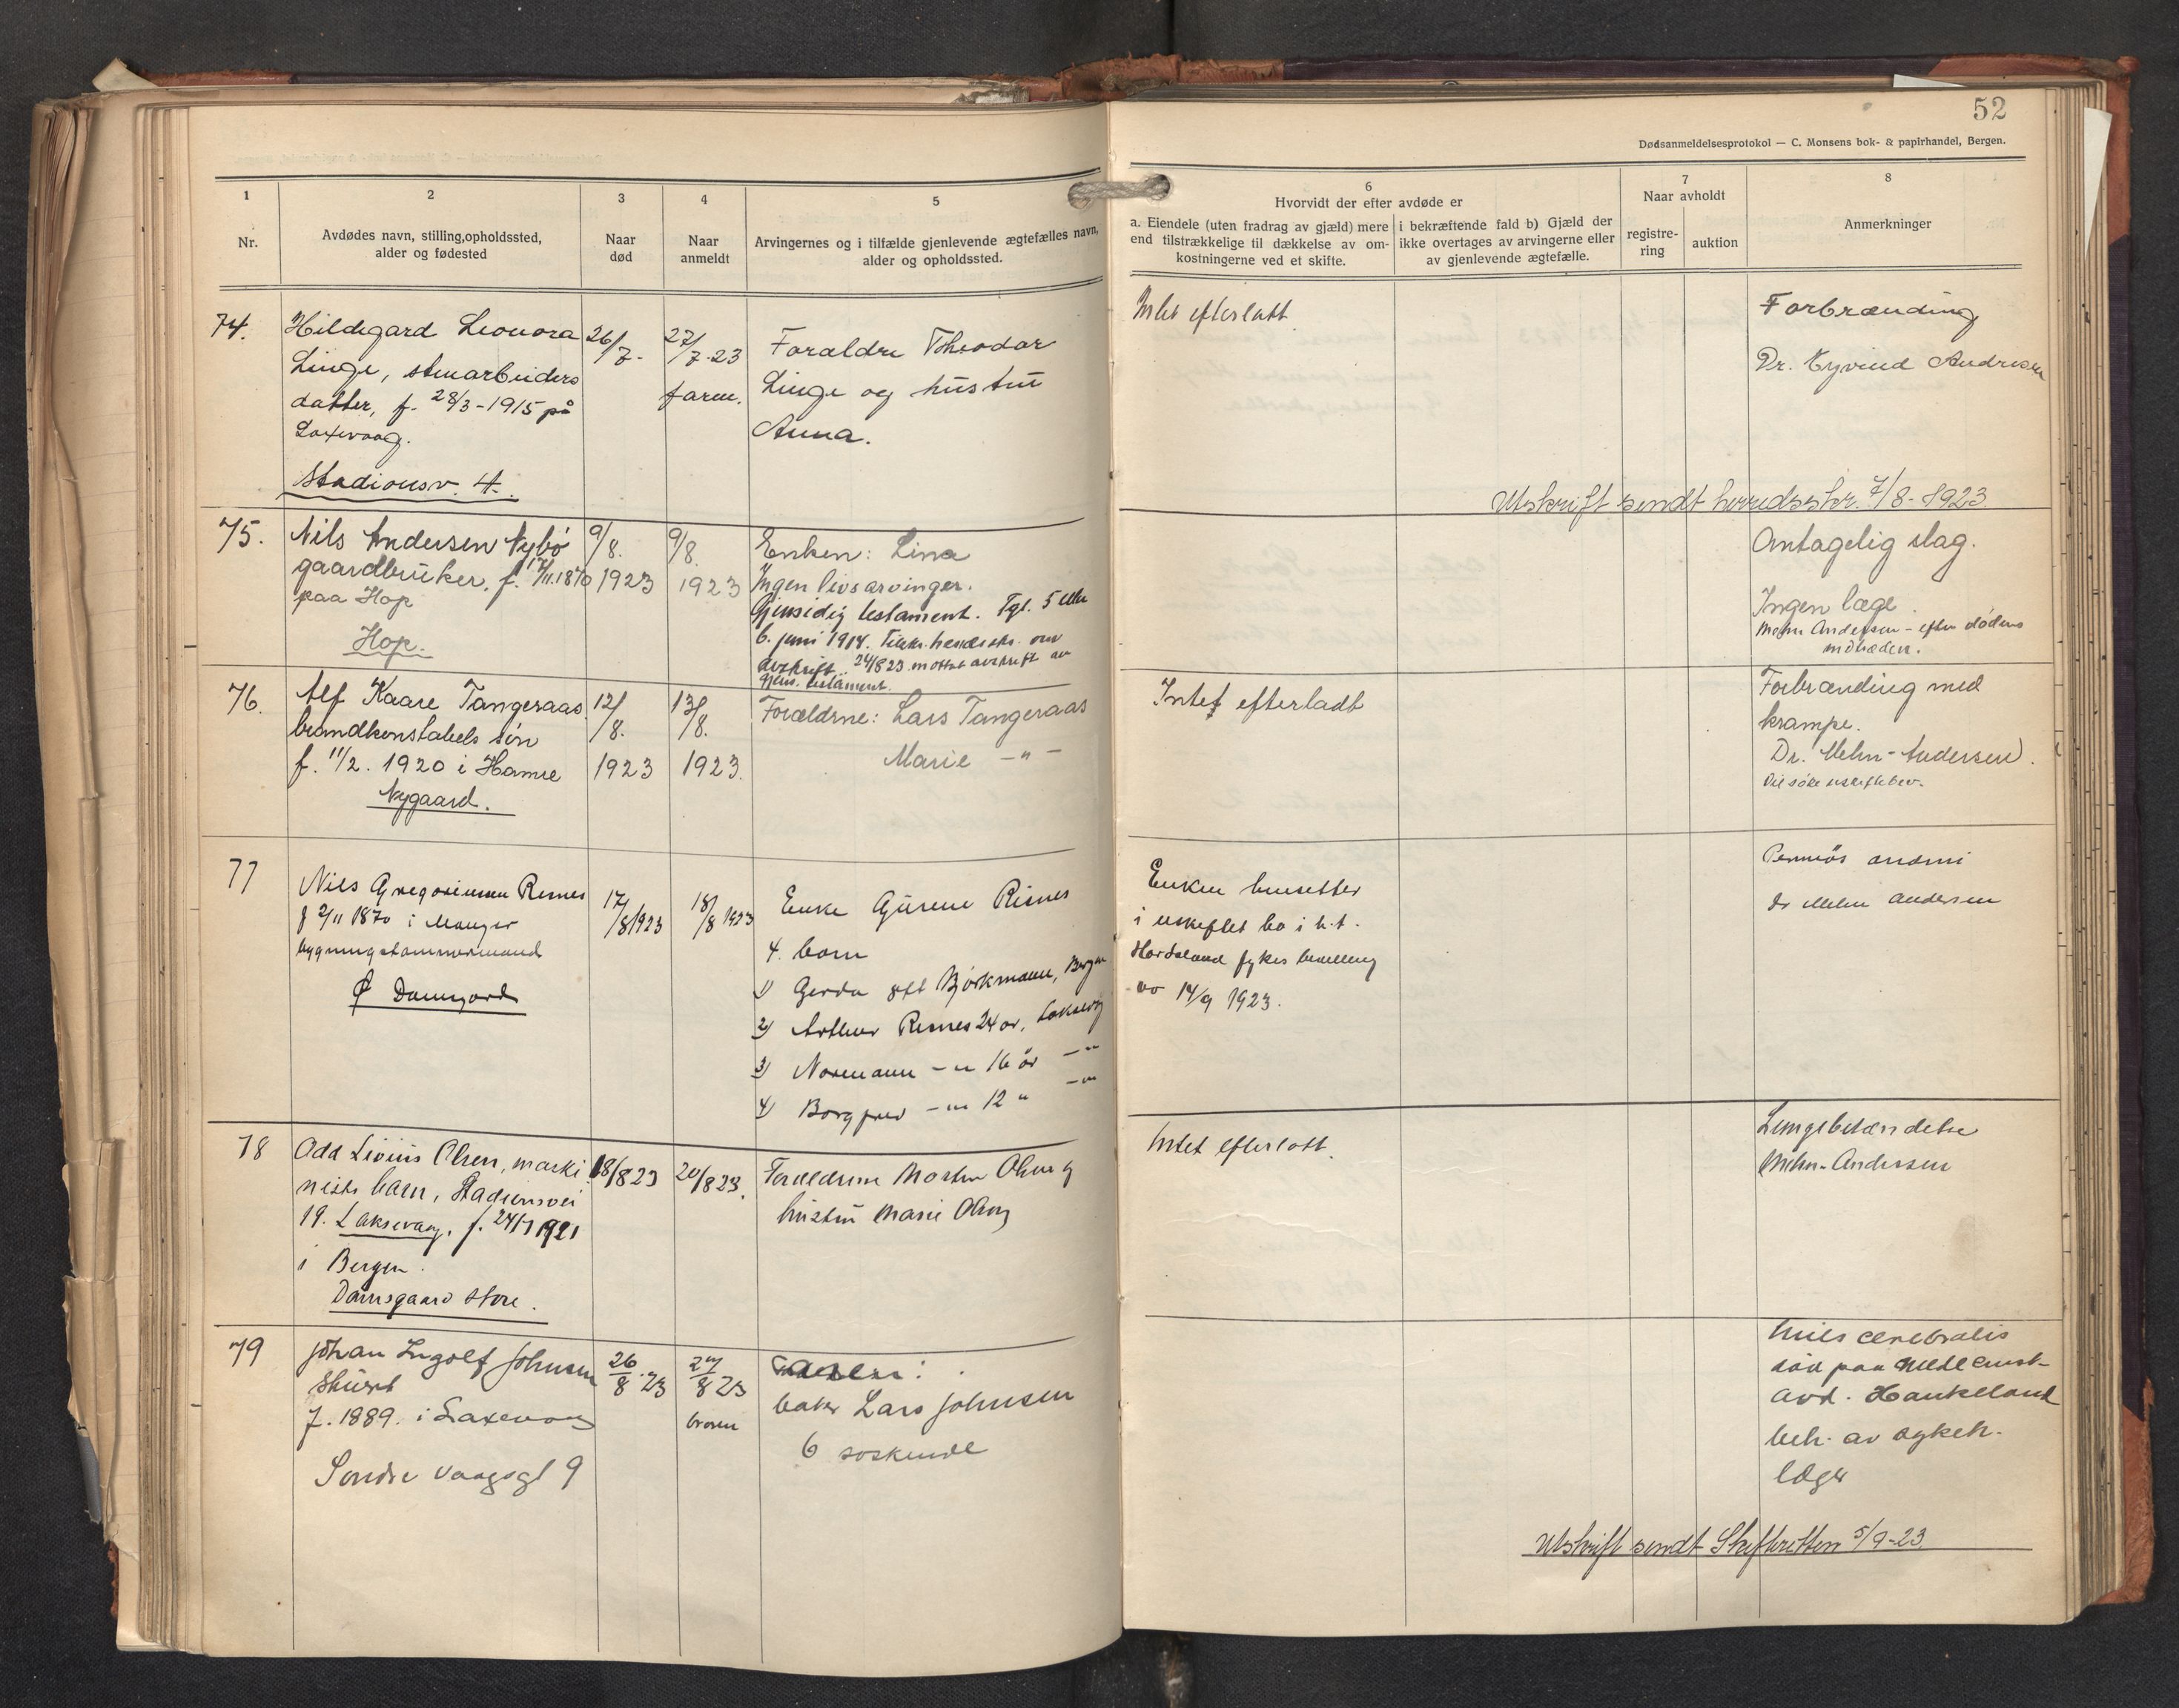 52
Dødsanmeldelsesprotokol — C. Monsens bok- & papirhandel, Bergen.
1
Nr.
2
Avdødes navn, stilling, opholdssted,
alder og fødested
3
Naar
død
4
Naar
anmeldt
5
Arvingernes og i tilfælde gjenlevende ægtefælles navn,
alder og opholdssted.
6
Hvorvidt der efter avdøde er
a. Eiendele (uten fradrag av gjæld) mere
end tilstrækkelige til dækkelse av om-
kostningerne ved et skifte.
i bekræftende fald b) Gjæld der
ikke overtages av arvingerne eller
av gjenlevende ægtefælle.
7
Naar avholdt
registre-
ring
auktion
8
Anmerkninger
74.
Hildegard Leonora
Linge, stenarbeiders
datter, f. 28/3-1915 på
Laxevaag.
Stadionsv. 4.
26/7-
27/7-23
faren.
Foraldre Theodor
Linge og hustru
Anna.
Intet efterlatt
Forbrænding
Dr. Eyvind Andresen
Utskrift sendt herredsskr. 7/8-1923.
75.
Nils Andersen Nybö
gaardbruker, f. 17/11.1870
paa Hop
Hop.
9/8.
1923
9/8.
1923
Enken: Lina
Ingen livsarvinger.
Gjensidig testament. Tgl. 5
6. juni 1914. om
avskrift. 24/8 23 mottat avskrift av
gjens. testament.
Antagelig slag.
Ingen læge.
Mohn Andersen - efter dødens
indtræden.
76.
Alf Kaare Tangeraas
brandkonstabels sön
f. 11/2. 1920 i Hamre
Nygaard.
12/8.
1923
13/8.
1923.
Forældrne: Lars Tangeraas
Marie —"—
Intet efterladt
Forbrænding med
krampe.
Dr. Mehn-Andersen.
77
Nils Gregoriussen Risnes
f 2/11 1870 i Manger
bygningstømmermand
Ø Damgård
17/8 1923
18/8 1923
Enke Gurine Risnes
4. barn
1) Gerda gft Björkmann, Bergen
2) Arthur Risnes 24 år, Laksevåg
3) Normann —" 16 år —"
4) Borgfred —" 12 " —"
Enken hensitter
i uskiftet bo i h.t.
Hordaland fylkes bevilling
av 14/9 1923.
Perniciøs anæmi
Dr Mehn Andersen
78
Odd Livius Olsen, maski-
nists barn, Stadionsvei
19. Laksevaag, f. 24/1 1921
i Bergen.
Damsgaard store.
18/8 23
20/8 23.
Forældrene Morten Olsen og
hustru Marie Olsen
Intet efterlatt.
Lungebetændelse
Mehn-Andersen
79
Johan Ingolf Johnsen
Skuesp
f. 1889. i Laxevaag
Søndre Vaagsgt 9
26/8 23
27/8 23
broren
Faren:
baker Lars Johnsen
6 søskende
lues cerebralis
död paa medecinsk
avd. Haukeland
beh. av sykeh.
læger
Utskrift sendt Skifteretten 5/9-23